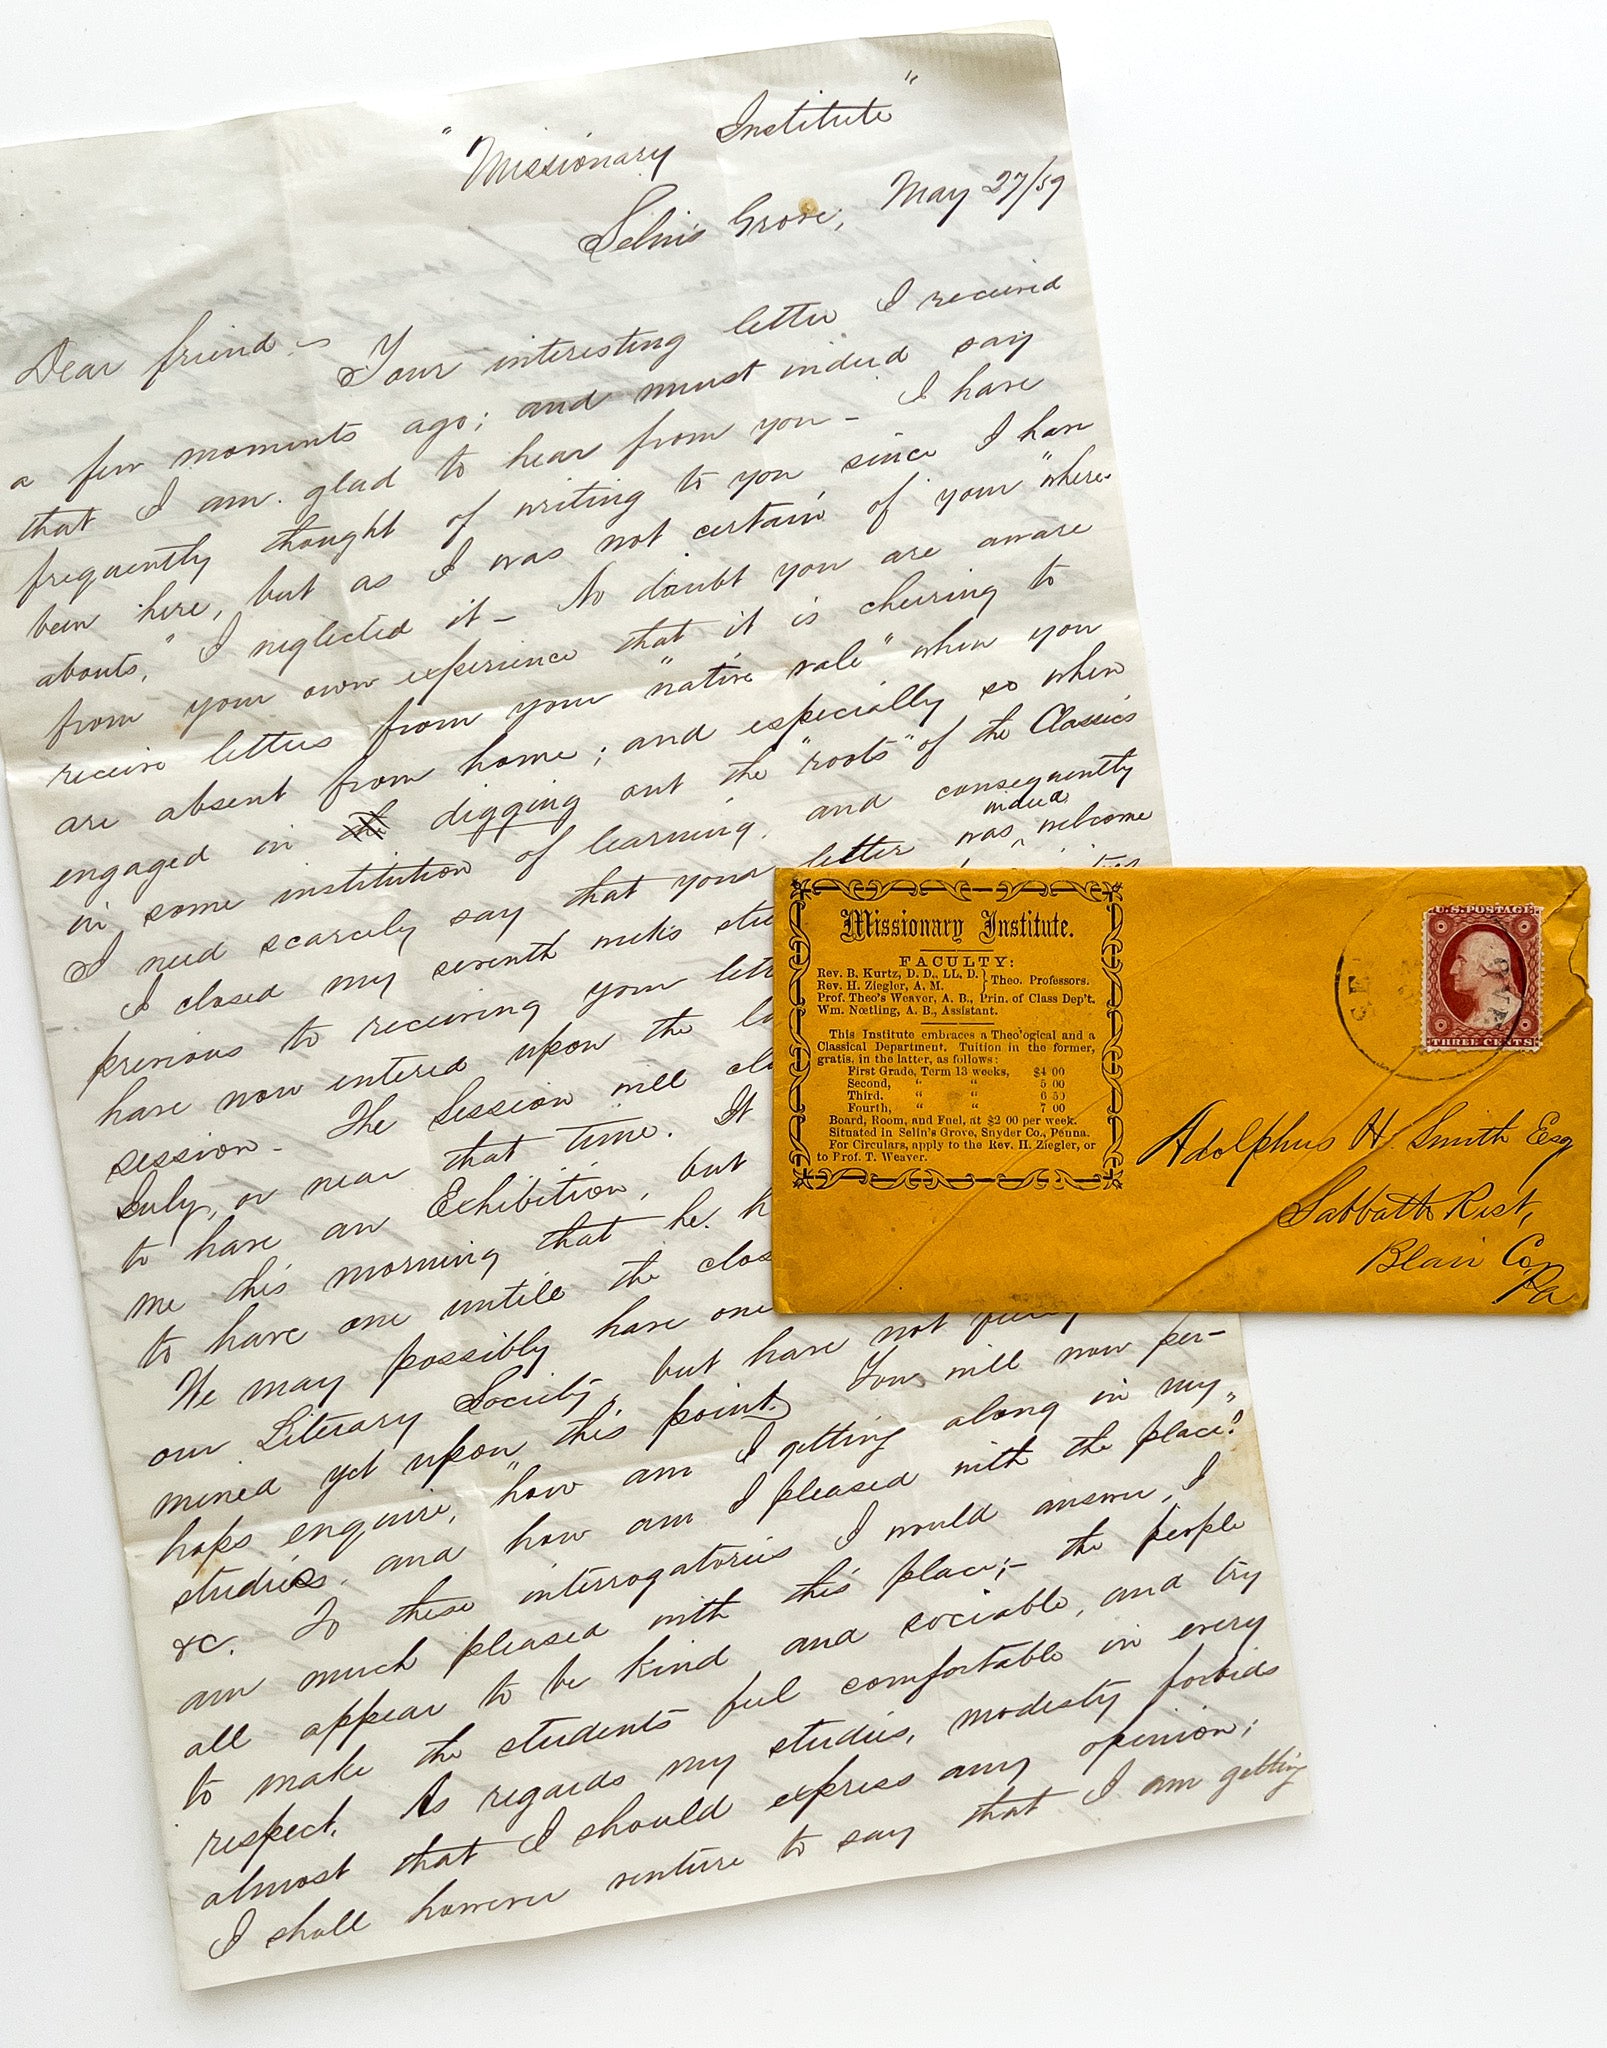 "Missionary Institute"
Selin's Grove, May 27/59
Dear friend - Your interesting letter I received
a few moments ago; and must indeed say
that I am glad to hear from you - I have
frequently thought of writing to you since I have
been here, but as I was not certain of your "where-
abouts," I neglected it - No doubt you are aware
from your own experience that it is cheering to
receive letters from your "native vale" when you
are absent from home; and especially so when
engaged in digging out the "roots" of the Classics
in some institution of learning. and consequently
I need scarcely say that your letter was indeed welcome
I closed my seventh week's
previous to receiving your
have now entered upon the
session - The Session will
July, or near that time. It
to have an Exhibition, but
me this morning that he
to have one untill the
We may possibly have one
our Literary Society, but have not
mined yet upon this point. You will now per-
haps enquire, "how am I getting along in my
studies, and how am I pleased with the place?"
&c. To these interrogatories I would answer, I
am much pleased with this place;- the people
all appear to be kind and sociable, and try
to make the students feel comfortable in every
respect. As regards my studies, modesty forbids
almost that I should express any opinion;
I shall however venture to say that I am getting
Missionary Institute.
FACULTY:
Rev. B. Kurtz, D. D., LL. D. } Theo. Professors.
Rev. H. Ziegler, A. M.
Prof. Theo's Weaver, A. B., Prin. of Class Dep't.
Wm. Nœtling, A. B., Assistant.
This Institute embraces a Theo'ogical and a
Classical Department. Tuition in the former,
gratis, in the latter, as follows:
First Grade, Term 13 weeks, $4 00
Second, " " 5 00
Third. " " 6 50
Fourth, " " 7 00
Board, Room, and Fuel, at $2 00 per week.
Situated in Selin's Grove, Snyder Co., Penna.
For Circulars, apply to the Rev. H. Ziegler, or
to Prof. T. Weaver.
U.S. POSTAGE
THREE CENTS
Adolphus H. Smith Esq
Sabbath Rest,
Blair Co,
Pa